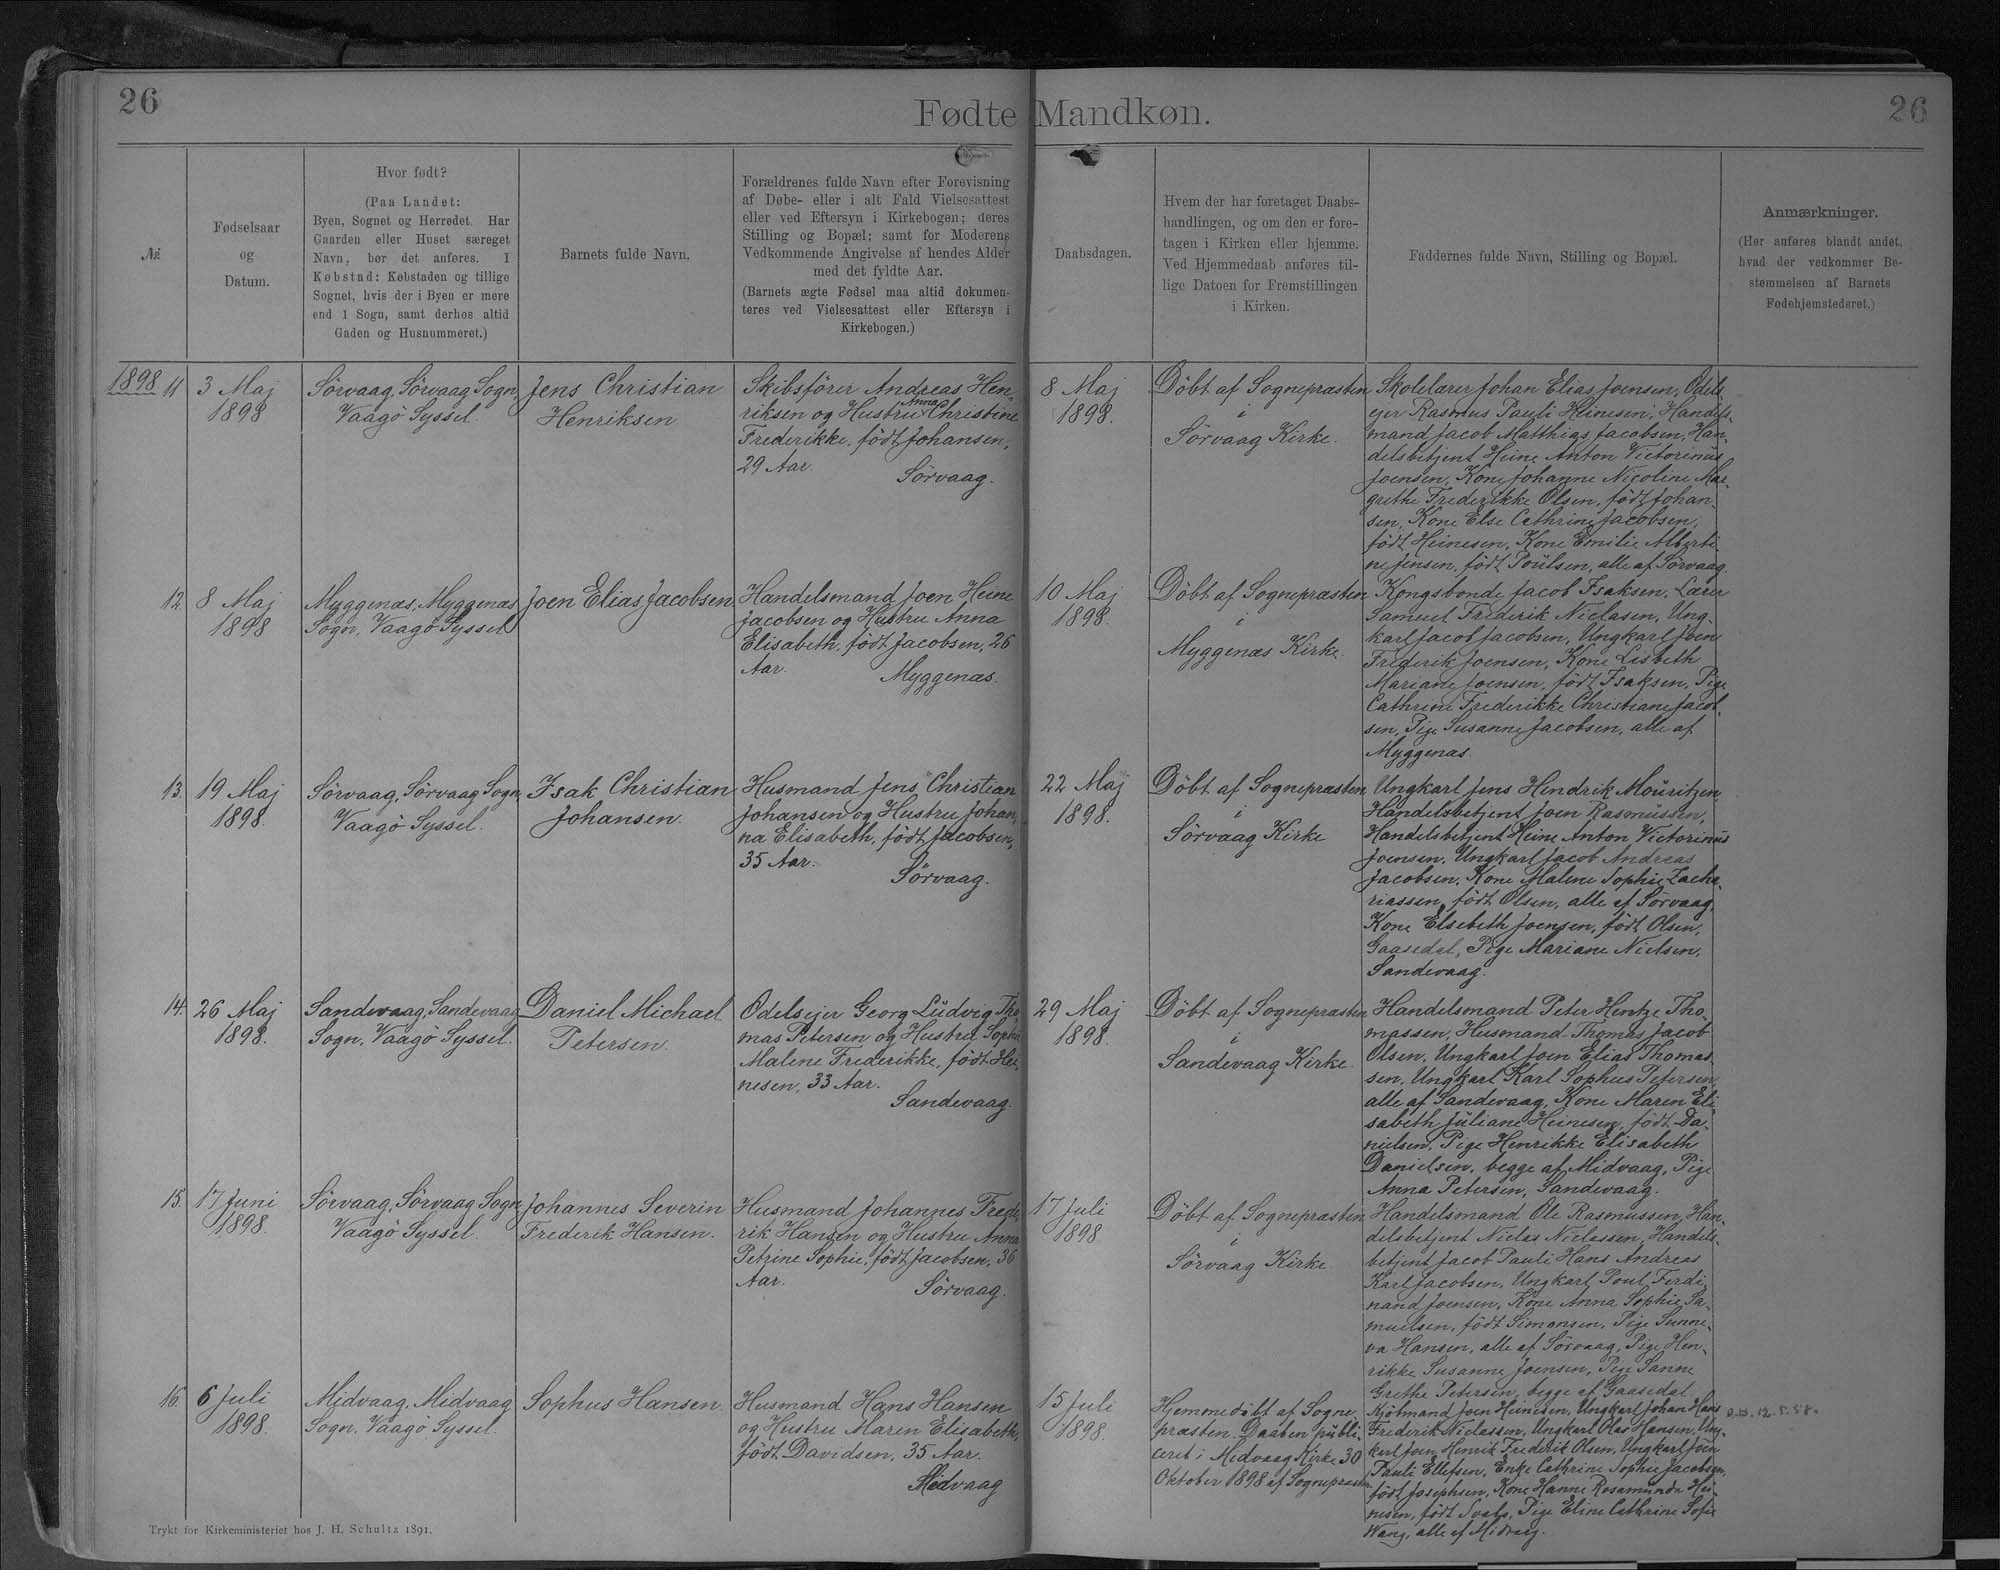 26
Fødte Mandkøn.
26
№
Fødselsaar
og
Datum.
Hvor født?
(Paa Landet:
Byen, Sognet og Herredet. Har
Gaarden eller Huset særeget
Navn, bør det anføres. I
Købstad: Købstaden og tillige
Sognet, hvis der i Byen er mere
end 1 Sogn, samt derhos altid
Gaden og Husnummeret.)
Barnets fulde Navn.
Forældrenes fulde Navn efter Forevisning
af Døbe- eller i alt Fald Vielsesattest
eller ved Eftersyn i Kirkebogen; deres
Stilling og Bopæl; samt for Moderens
Vedkommende Angivelse af hendes Alder
med det fyldte Aar.
(Barnets ægte Fødsel maa altid dokumen-
teres ved Vielsesattest eller Eftersyn i
Kirkebogen.)
Daabsdagen.
Hvem der har foretaget Daabs-
handlingen, og om den er fore-
tagen i Kirken eller hjemme.
Ved Hjemmedaab anføres til-
lige Datoen for Fremstillingen
i Kirken.
Faddernes fulde Navn, Stilling og Bopæl.
Anmærkninger.
(Her anføres blandt andet,
hvad der vedkommer Be-
stemmelsen af Barnets
Fødehjemstedsret.)
1898 11
3 Maj
1898
Sörvaag, Sörvaag Sogn,
Vaagö Syssel.
Jens Christian
Henriksen
Skibsförer Andreas Hen-
riksen og Hustru Anna Christine
Frederikke, födt Johansen,
29 Aar.
Sörvaag.
8 Maj
1898.
Döbt af Sognepræsten
i
Sörvaag Kirke.
Skolelærer Johan Elias Joensen, Odels-
ejer Rasmus Pauli Heinesen, Handels-
mand Jacob Matthias Jacobsen, Han-
delsbetjent Heine Anton Victorinus
Joensen, Kone Johanne Nicoline Mar-
grethe Frederikke Olsen, födt Johan-
sen, Kone Else Cathrine Jacobsen,
födt Heinesen, Kone Emilie Alberti-
ne Jensen, födt Poulsen, alle af Sörvaag.
12.
8 Maj
1898
Myggenæs, Myggenæs
Sogn, Vaagö Syssel
Joen Elias Jacobsen.
Handelsmand Joen Heine
Jacobsen og Hustru Anna
Elisabeth, födt Jacobsen, 26
Aar.
Myggenæs.
10 Maj
1898.
Döbt af Sognepræsten
i
Myggenæs Kirke.
Kongsbonde Jacob Isaksen, Lærer
Samuel Frederik Niclasen, Ung-
karl Jacob Jacobsen, Ungkarl Joen
Frederik Joensen, Kone Lisbeth
Mariane Joensen, födt Isaksen, Pige
Cathrine Frederikke Christiane Jacob-
sen, Pige Susanne Jacobsen, alle af
Myggenæs.
13.
19 Maj
1898.
Sörvaag, Sörvaag Sogn,
Vaagö Syssel.
Isak Christian
Johansen.
Husmand Jens Christian
Johansen og Hustru Johan-
na Elisabeth, födt Jacobsen,
35 Aar.
Sörvaag.
22 Maj
1898.
Döbt af Sognepræsten
i
Sörvaag Kirke
Ungkarl Jens Hendrik Mouritzen,
Handelsbetjent Joen Rasmussen,
Handelsbetjent Heine Anton Victorinus
Joensen, Ungkarl Jacob Andreas
Jacobsen, Kone Malene Sophie Zacha-
riassen, födt Olsen, alle af Sörvaag,
Kone Elsebeth Joensen, födt Olsen,
Gaasedal, Pige Mariane Nielsen,
Sandevaag.
14.
26 Maj
1898.
Sandevaag, Sandevaag
Sogn, Vaagö Syssel.
Daniel Michael
Petersen.
Odelsejer Georg Ludvig Tho-
mas Petersen og Hustru Sophie
Malene Frederikke, födt Hei-
nesen, 33 Aar.
Sandevaag.
29 Maj
1898.
Döbt af Sognepræsten
i
Sandevaag Kirke.
Handelsmand Peter Hentze Tho-
massen, Husmand Thomas Jacob
Olsen, Ungkarl Joen Elias Thomas-
sen, Ungkarl Karl Sophus Petersen,
alle af Sandevaag, Kone Maren Eli-
sabeth Juliane Heinesen, födt Da-
nielsen, Pige Henrikke Elisabeth
Danielsen, begge af Midvaag, Pige
Anna Petersen, Sandevaag.
15.
17 Juni
1898.
Sörvaag, Sörvaag Sogn,
Vaagö Syssel.
Johannes Severin
Frederik Hansen.
Husmand Johannes Frede-
rik Hansen og Hustru Anna
Petrine Sophie, födt Jacobsen, 36
Aar.
Sörvaag.
17 Juli
1898
Döbt af Sognepræsten
i
Sörvaag Kirke.
Handelsmand Ole Rasmussen, Han-
delsbetjent Niclas Niclassen, Handels-
betjent Jacob Pauli Hans Andreas
Karl Jacobsen, Ungkarl Poul Ferdi-
nand Joensen, Kone Anna Sophie Sa-
muelsen, födt Simonsen, Pige Sunne-
va Hansen, alle af Sörvaag, Pige Hen-
rikke Susanne Joensen, Pige Sanne
Grethe Petersen, begge af Gaasedal.
16.
6 Juli
1898.
Midvaag, Midvaag
Sogn, Vaagö Syssel.
Sophus Hansen.
Husmand Hans Hansen
og Hustru Maren Elisabeth,
födt Davidsen, 35 Aar.
Midvaag
15 Juli
1898.
Hjemmedöbt af Sogne-
præsten. Daaben publi-
ceret i Midvaag Kirke 30
Oktober 1898 af Sognepræsten.
Kjöbmand Joen Heinesen, Ungkarl Johan Hans
Frederik Niclassen, Ungkarl Olaf Hansen, Ung-
karl Joen Henrik Frederik Olsen, Ungkarl Joen
Pauli Ellefsen, Enke Cathrine Sophie Jacobsen,
födt Josephsen, Kone Hanne Rosamunda Hei-
nesen, födt Svabo, Pige Eline Cathrine Sofie
Wang, alle af Midvaag.
12.5.58.
Trykt for Kirkeministeriet hos J. H. Schultz 1891.